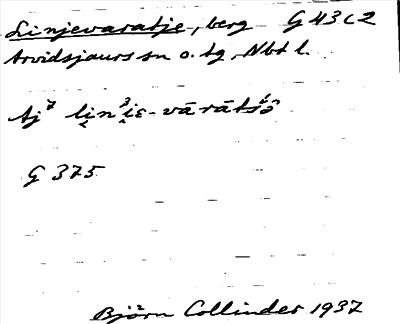 Linjevaratje, berg G 43 c 2
Arvidsjaurs sn o. tg, Nbt l.
Aj⁷ li̮n³i̯ɛ-vārātśɔ̂
G 375
Björn Collinder 1937